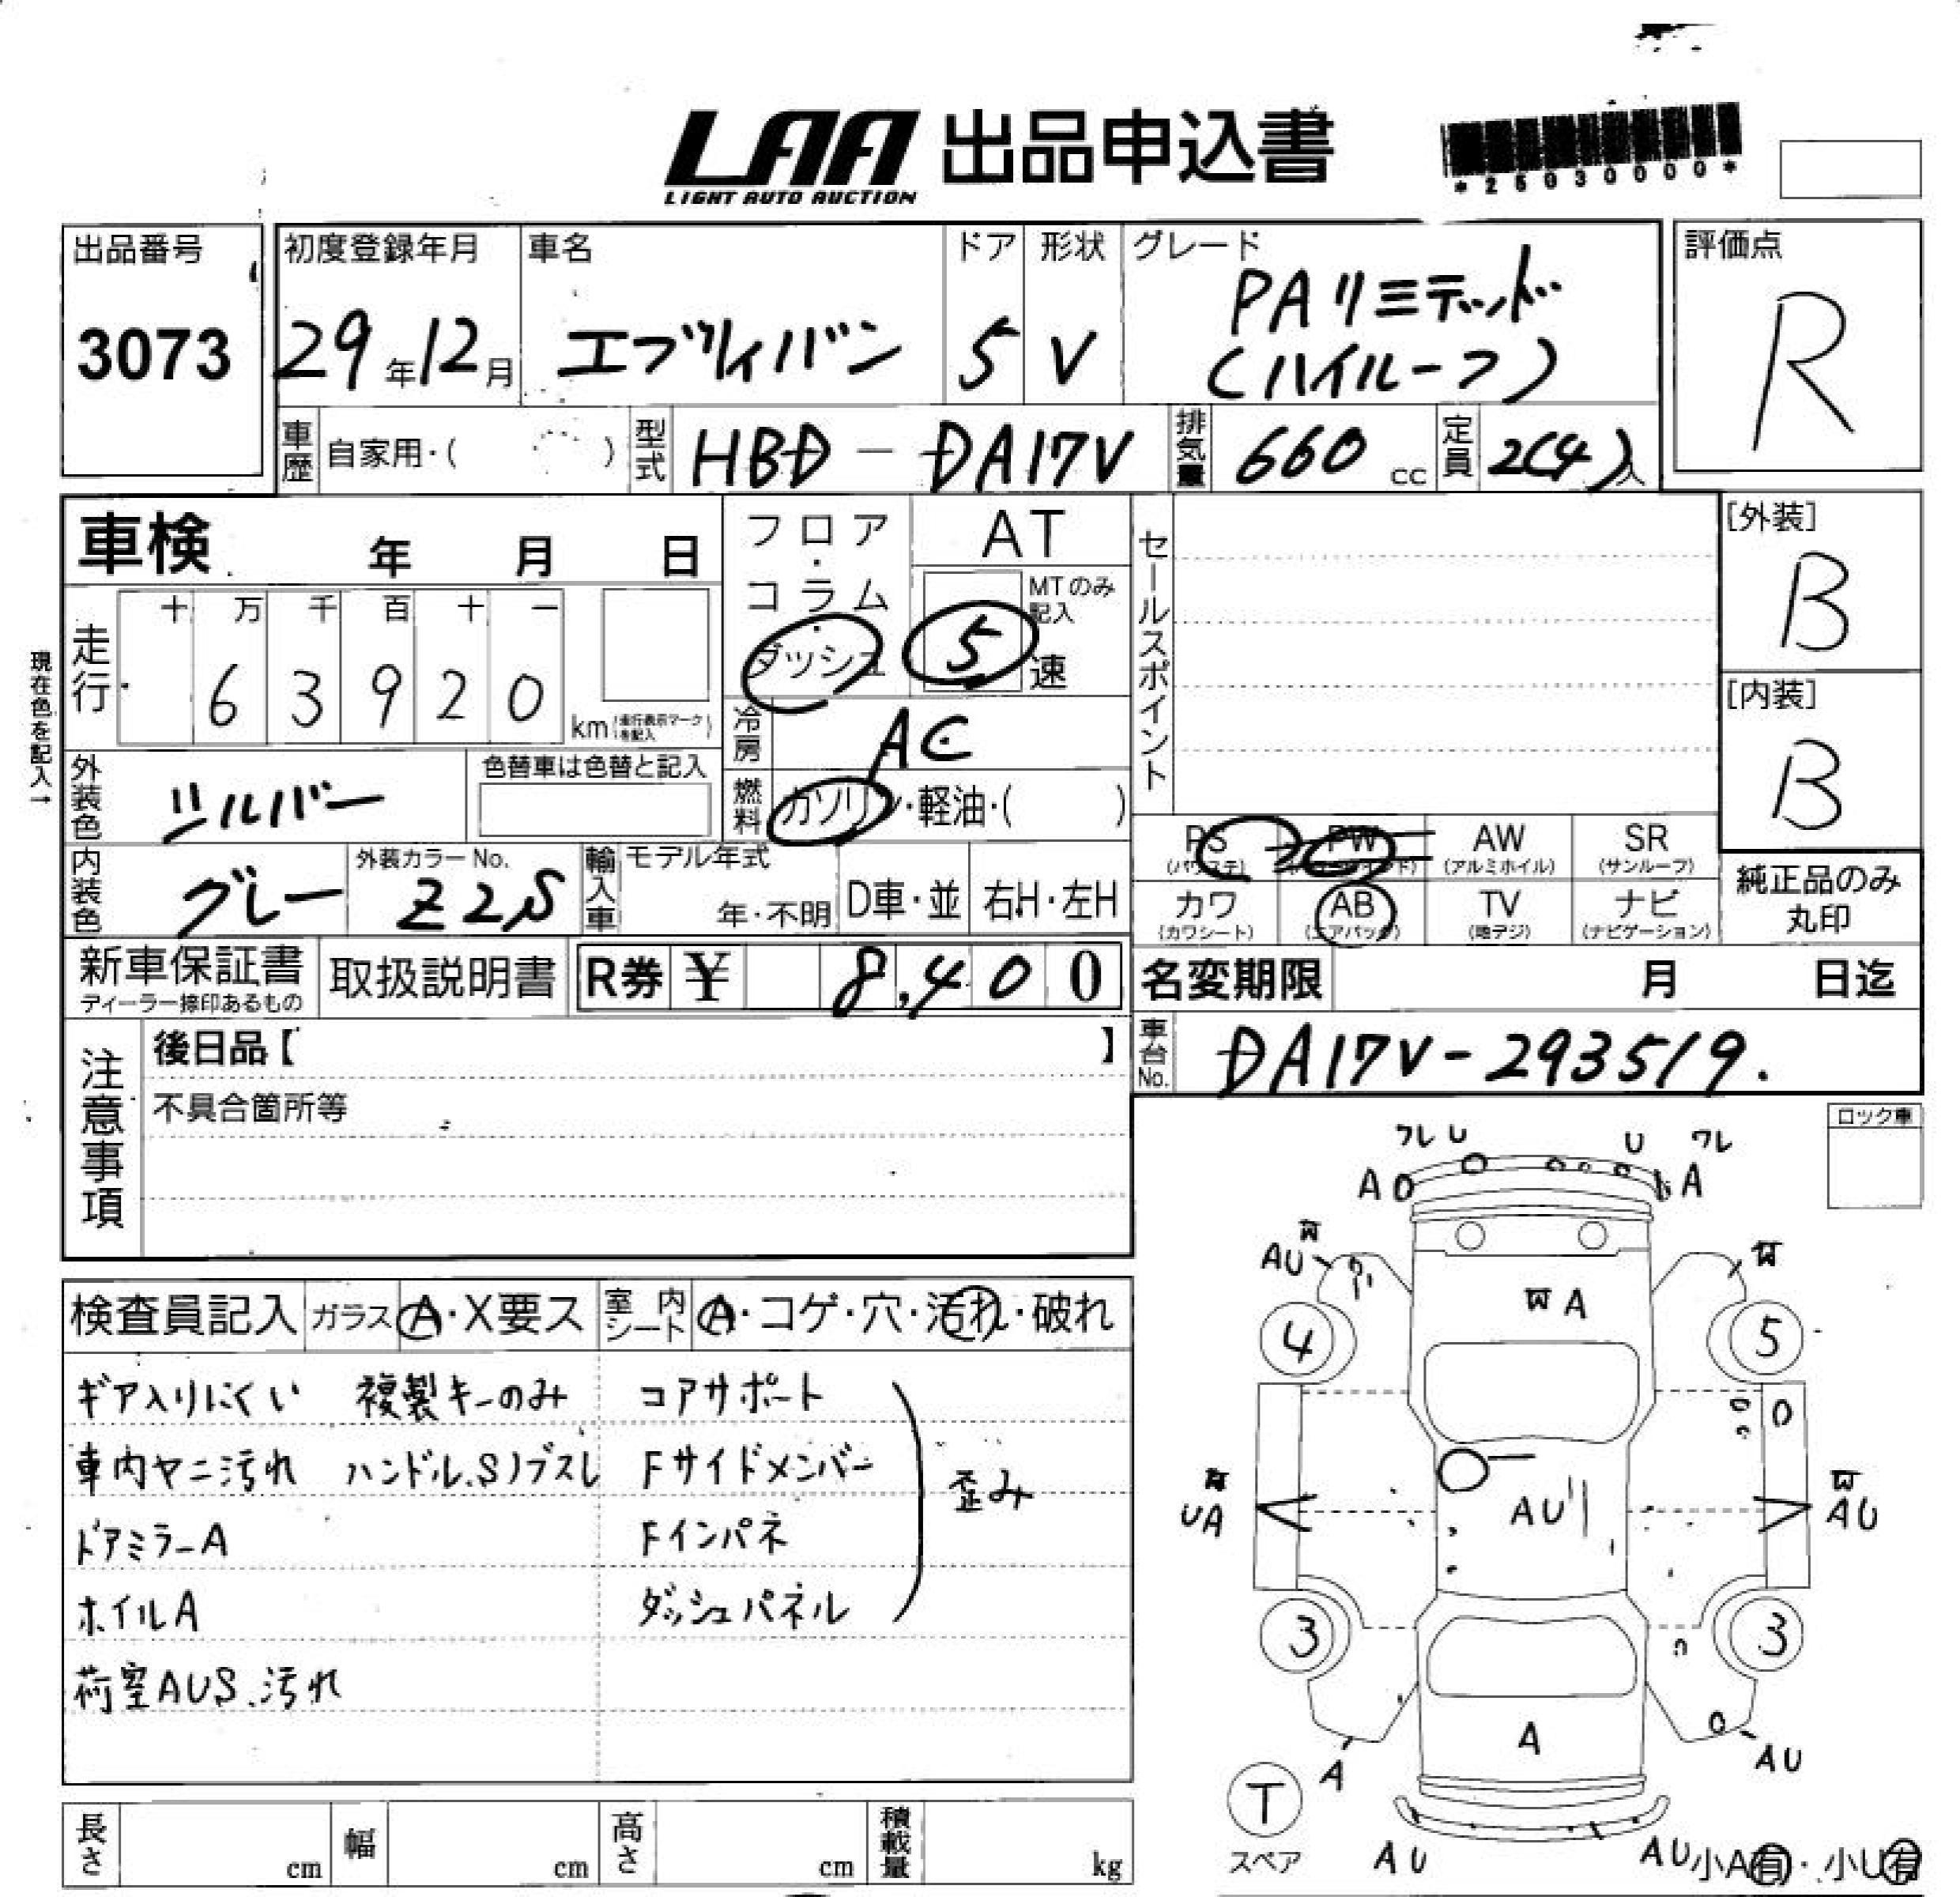 LAA 出品申込書
LIGHT AUTO AUCTION
*25030000*
出品番号
3073
初度登録年月
29年12月
車名
エブリィバン
ドア
5
形状
V
グレード
PAリミテッド
(ハイルーフ)
評価点
R
車歴 自家用・( )
型式 HBD-DA17V
排気量 660 cc
定員 2(4)人
車検 年 月 日
フロア・コラム・ダッシュ
AT
MTのみ記入
5速
セールスポイント
[外装]
B
[内装]
B
現在色を記入→
走行 十万千百十一
63920 km (走行表示マークを記入)
冷房 AC
外装色 シルバー
色替車は色替と記入
燃料 ガソリン・軽油・( )
内装色 グレー
外装カラーNo.
Z2S
輸入車 モデル年式
年・不明
D車・並
右H・左H
PS (パワステ) PW (パワーウインド) AW (アルミホイル) SR (サンルーフ)
カワ (カワシート) AB (エアバッグ) TV (地デジ) ナビ (ナビゲーション)
純正品のみ
丸印
新車保証書
ディーラー捺印あるもの
取扱説明書
R券 ¥ 8,400
名変期限 月 日迄
注意事項
後日品【 】
不具合箇所等
車台No. DA17V-293519.
ロック車
検査員記入 ガラス A・X要ス 室内シート A・コゲ・穴・汚れ・破れ
ギア入りにくい 複製キーのみ コアサポート
車内ヤニ汚れ ハンドル、Sノブスレ Fサイドメンバー
歪み
ドアミラーA Fインパネ
ホイルA ダッシュパネル
荷室AUS、汚れ
ワレ U U ワレ
A A
W
AU W
W A
4 5
W W
UA AU AU
3 3
A
A AU
T
スペア
AU AU 小A有・小U有
長さ cm 幅 cm 高さ cm 積載量 kg